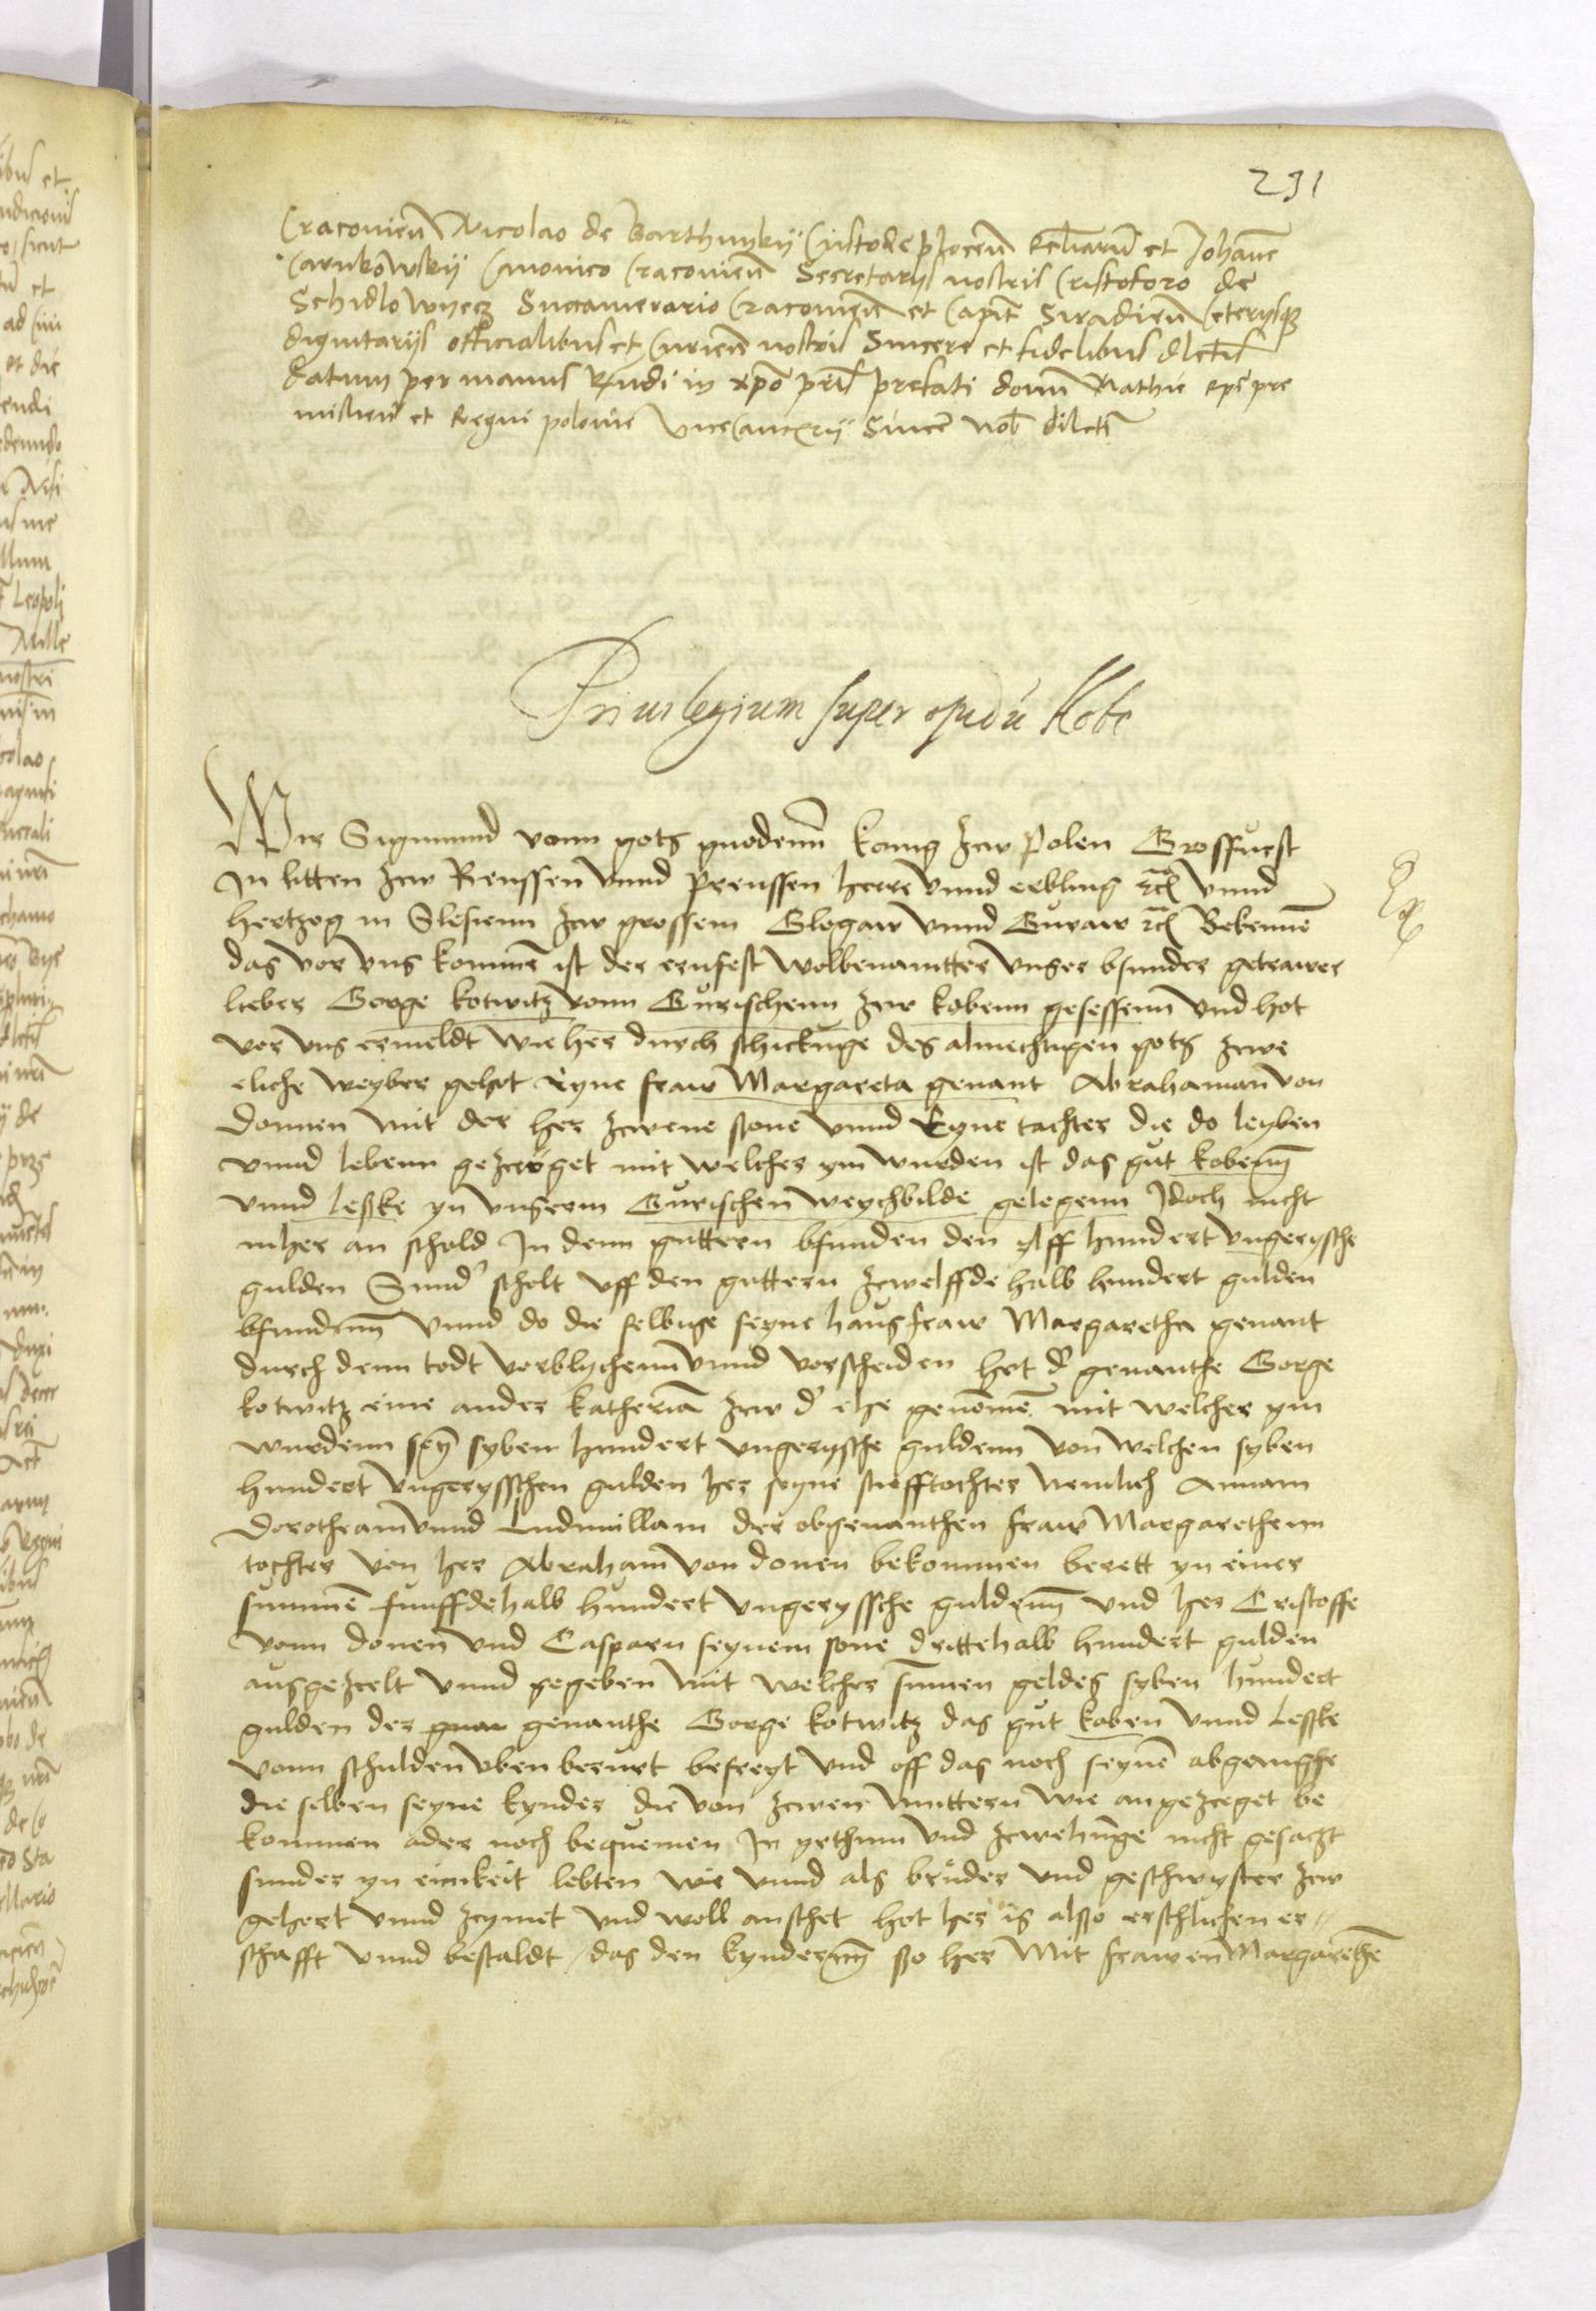 231
Cracovien Nicolao de Barthnyky Custode plocen Ecliarum et Johanne
Carnkowsky Canonico Cracovien Secretarys nostris Cristoforo de
Schidlowyecz Succamerario Cracovien et Capit Siradien Ceterisq
dignitariis officialibus et Curien nostris Sincere et fidelibus dlectis
datum per manus Rndi in xpo pris prefati domi Mathie epi pre
mislien et Regni polonie vicecancerii Since nob dilecti
Privilegium super opidu Kobe
Wir Sigmund vonn gots gnodenn konig zcw Polen Grosfurst
In litten zcw Reussen vnnd Preussen herre vnnd erbling etc vnnd
hertzog in Slesienn zcw grossem Glogaw vnnd Guraw etc Bekenne
das vor vns komme ist der ernfest wolbenamtter vnser bsunder getrawer
lieber Gorge kotwitz vonn Gurischenn zcw kobenn gesessenn vnd hot
vor vns ermeldt wie her durch schickunge des almechtigen gots zcwe
eliche weyber gehot Eyne fraw Margareta genant Abrahaman von
donnen mit der her zcwene sone vnnd Eyne tachter die do leyben
vnnd lebenn gezcewget mit welcher ym wurden ist das gut kobenn
vnnd leske yn vnserm Gurischen weychbilde gelegenn Idoch nicht
mher an schold In denn guttern bfunden den eylff hundert vngerysche
gulden Sund scholt vff den guttern zcwelffde halb hundert gulden
bfundenn vnnd do die selbige seyne hausfraw Margaretha genant
durch denn todt vorblychenn vnnd vorscheiden het d genanthe Gorge
kotwitz eine ander katherina zcw d ehe genome mit welcher ym
wurdenn seyn syben hundert vngerysche guldenn von welchen syben
hundert vngeryschen gulden her seyne stifftochter nemlich Annam
Dorotheam vnnd Ludmillam der obgenanthen fraw Margarethenn
tochter von her Abraham von donen bekommen berett yn einer
summe funffdehalb hundert vngeryssche guldenn vnd her Cristoffe
vonn donen vnd Casparn seynem sone drittehalb hundert gulden
ausgezcelt vnnd gegeben mit welcher summen geldes syben hundert
gulden der genanthe Gorge kotwitz das gut koben vnnd Leske
vonn schulden oben berurt befreyt vnd off das noch seyne abgenghe
die selben seyne kynder die von zcwen muttern wie angezceget be
kommen ader noch bequemen In yrthum vnd zcwehunge nicht gesatzt
sunder yn einikeit lebten wie vnnd als bruder vnd geschwyster zcw
gehort vnnd zcymet vnd woll anschet hot her is also erschlichen er
schafft vnnd bestaldt / das den kyndernn so her Mit frawen Margarethe